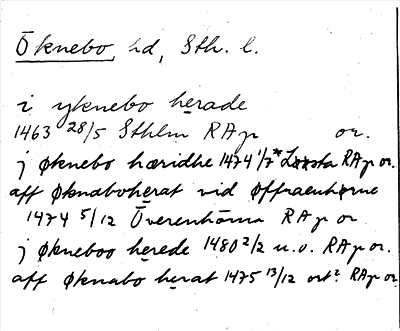 Öknebo hd, Sth. l.
i yknebo herade
1463 28/5 Sthlm RAp or.
j øknebo hæridhe 1474 1/7 RAp or.
aff øknaboherat vid øffraenhørne
1474 5/12 Överenhörna RAp or
j økneboo herede 1480 2/2 u.o. RAp or.
aff øknabo herat 1475 13/12 ort? RAp or